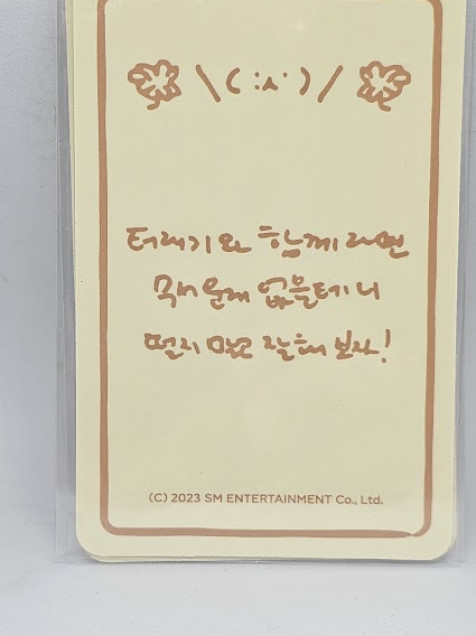 \( :ㅅ: )/
터래기와 함께라면
무서울게 없을테니
떨지 말고 잘해 보자!
(C) 2023 SM ENTERTAINMENT Co., Ltd.